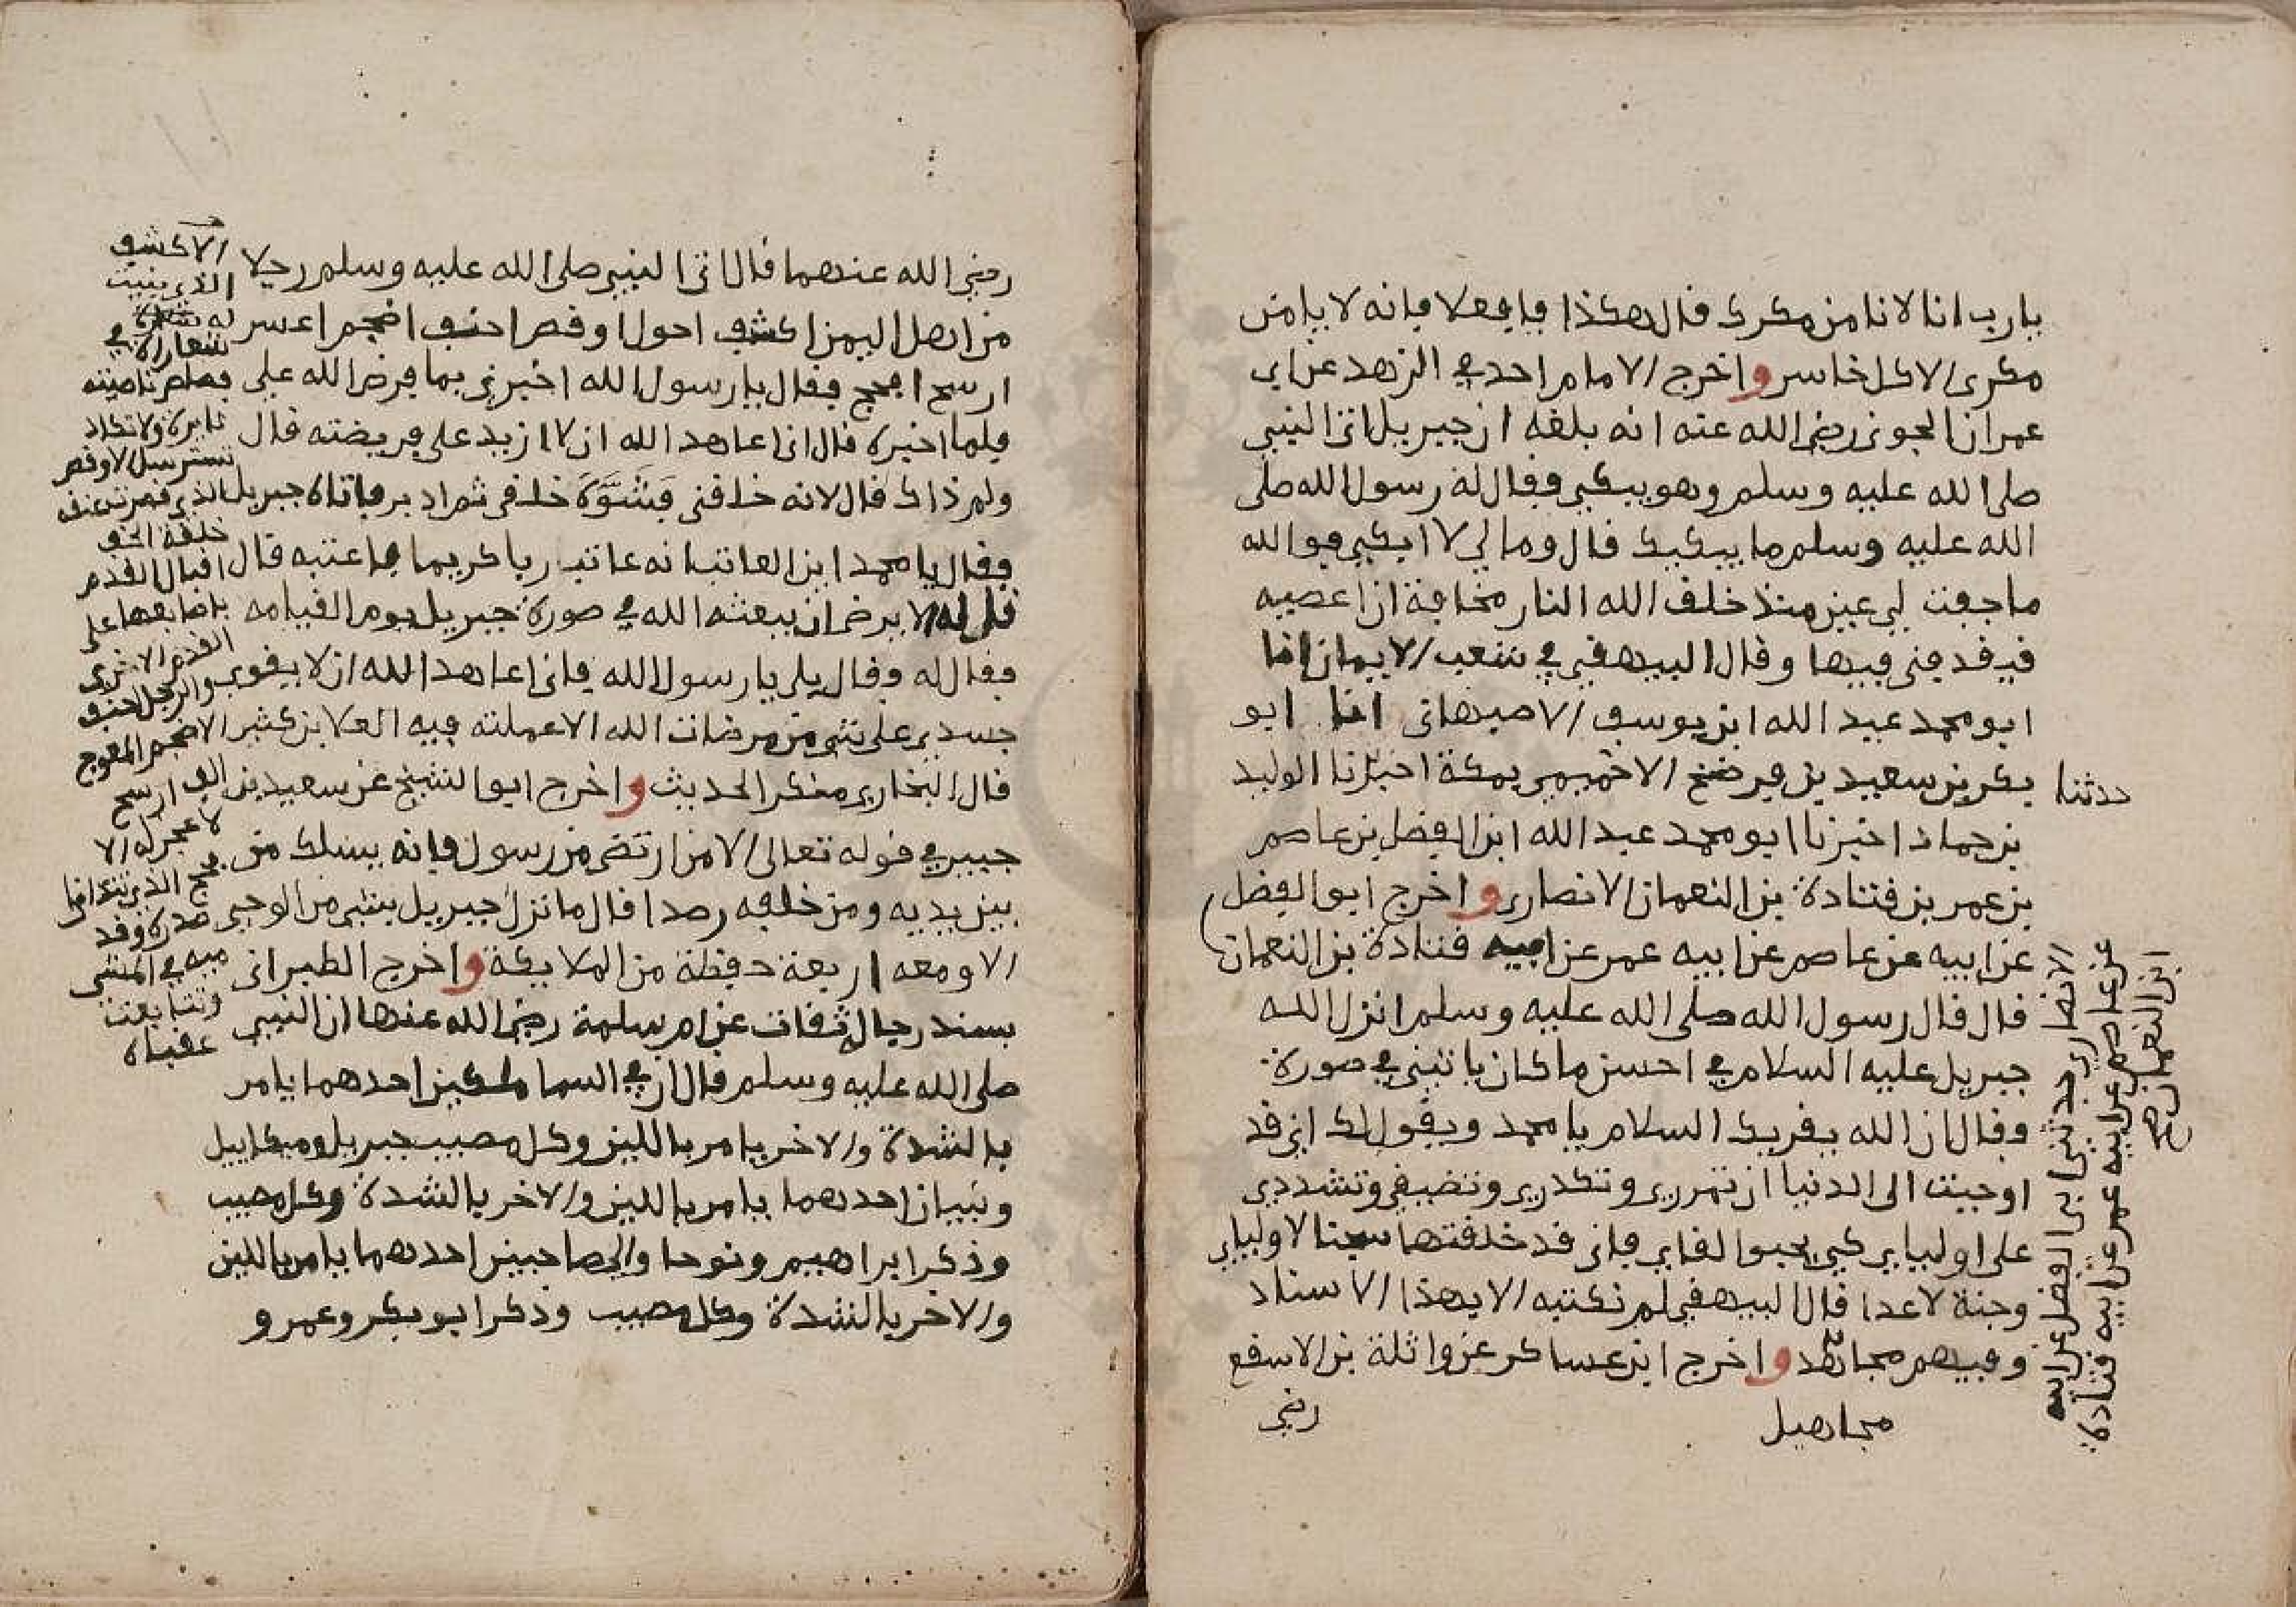 يارب انا لا نامن مكرك قال هكذا فافعلا فانه لا يامن
مكرى الا كل خاسر واخرج الامام احد في الزهد عن ابى
عمران الجونى رضى الله عنه انه بلغه ان جبريل اتى النبى
صلى الله عليه وسلم وهو يبكى فقال له رسول الله صلى
الله عليه وسلم ما يبكيك قال ومالي لا ابكى فوالله
ما جفت لي عين منذ خلق الله النار مخافة ان اعصيه
فيقذفنى فيها وقال البيهقى في شعب الايمان انا
ابو محمد عبد الله ابن يوسف الاصبهانى انا ابو
بكر بن سعيد بن فرضخ الاخميمى بمكة اخبرنا الوليد
حدثنا
بن حماد اخبرنا ابو محمد عبد الله ابن الفضل بن عاصم
بن عمر بن قتادة بن النعمان الانصارى واخرج ابو الفضل
عن ابيه عن عاصم عن ابيه عمر عن ابيه قتادة بن النعمان
قال قال رسول الله صلى الله عليه وسلم انزل الله
جبريل عليه السلام في احسن ما كان ياتينى في صورة
وقال ان الله يقريك السلام يا محمد ويقول لك انى قد
اوحيت الى الدنيا ان تمررى وتكدرى وتضيقى وتشددى
على اوليايى كي يحبوا لقاى فانى قد خلقتها سجنا لاوليايى
وجنة لاعدا قال البيهقى لم نكتبه الا بهذا الاسناد
وفيهم مجاهد واخرج ابن عساكر عن واثلة بن الاسقع
مجاهيل
رضى
الانصارى حدثنى ابى الفضل عن ابيه
عن عاصم عن ابيه عمر عن ابيه قتادة
ابن النعمان صح
رضى الله عنهما قال اتى النبى صلى الله عليه وسلم رجلا
من اهل اليمن اكشف احول اوقص احنف اضجم اعسر
ارسح افحج فقال يا رسول الله اخبرنى بما فرض الله على
فلما اخبره قال انى اعاهد الله ان لا ازيد على فريضته قال
ولم ذاك قال لانه خلقنى فشوه خلقى ثم ادبر فاتاه جبريل
فقال يا محمد اين العاتب انه عاتب ربا كريما فاعتبه قال
قل له الا يرضى ان يبعثه الله في صورة جبريل يوم القيامه
فقال له وقال بلى يا رسول الله فانى اعاهد الله ان لا يقوى
جسدى على شى من مرضات الله الا عملته فيه العلا بن كثير
قال البخارى منكر الحديث واخرج ابو الشيخ عن سعيد بن
جبير في قوله تعالى الا من ارتضى من رسول فانه يسلك من
بين يديه ومن خلفه رصدا قال ما نزل جبريل بشى من الوحى
الا ومعه اربعة حفظة من الملايكة واخرج الطبرانى
بسند رجاله ثقات عن ام سلمة رضى الله عنها ان النبى
صلى الله عليه وسلم قال ان في السما ملكين احدهما يامر
بالشدة والاخر يامر باللين وكل مصيب جبريل وميكاييل
ونبيان احدهما يامر باللين والاخر بالشدة وكل مصيب
وذكر ابراهيم ونوحا ولى صاحبين احدهما يامر باللين
والاخر بالشدة وكل مصيب وذكر ابو بكر وعمر و
الاكشف
الذى ينبت
له شعرات في
قصاص ناصيته
ثايرة ولا تكاد
تسترسل الاوقص
الذى قصرت عنقه
خلقة احنف
اقبال القدم
باصابعها على
القدم الاخرى
والرجل احنف
الاضجم المعوج
ارسح
لا عجز له الا
فحج الذى تتدانى
صدره وقد
ميه في المشى
وتتباعد
عقباه